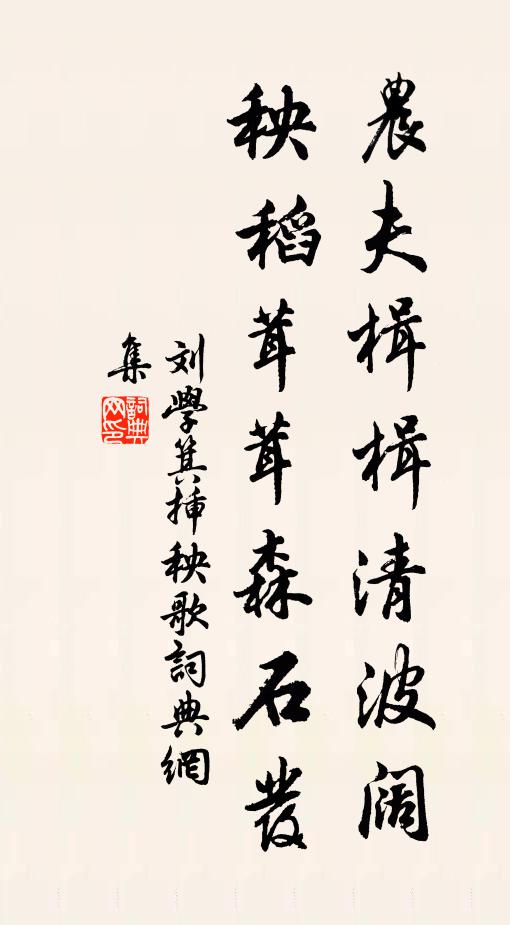 農夫楫楫清波阔
秧稻茸茸森石發
刘學箕插秧歌詞典網
集
詞典网印